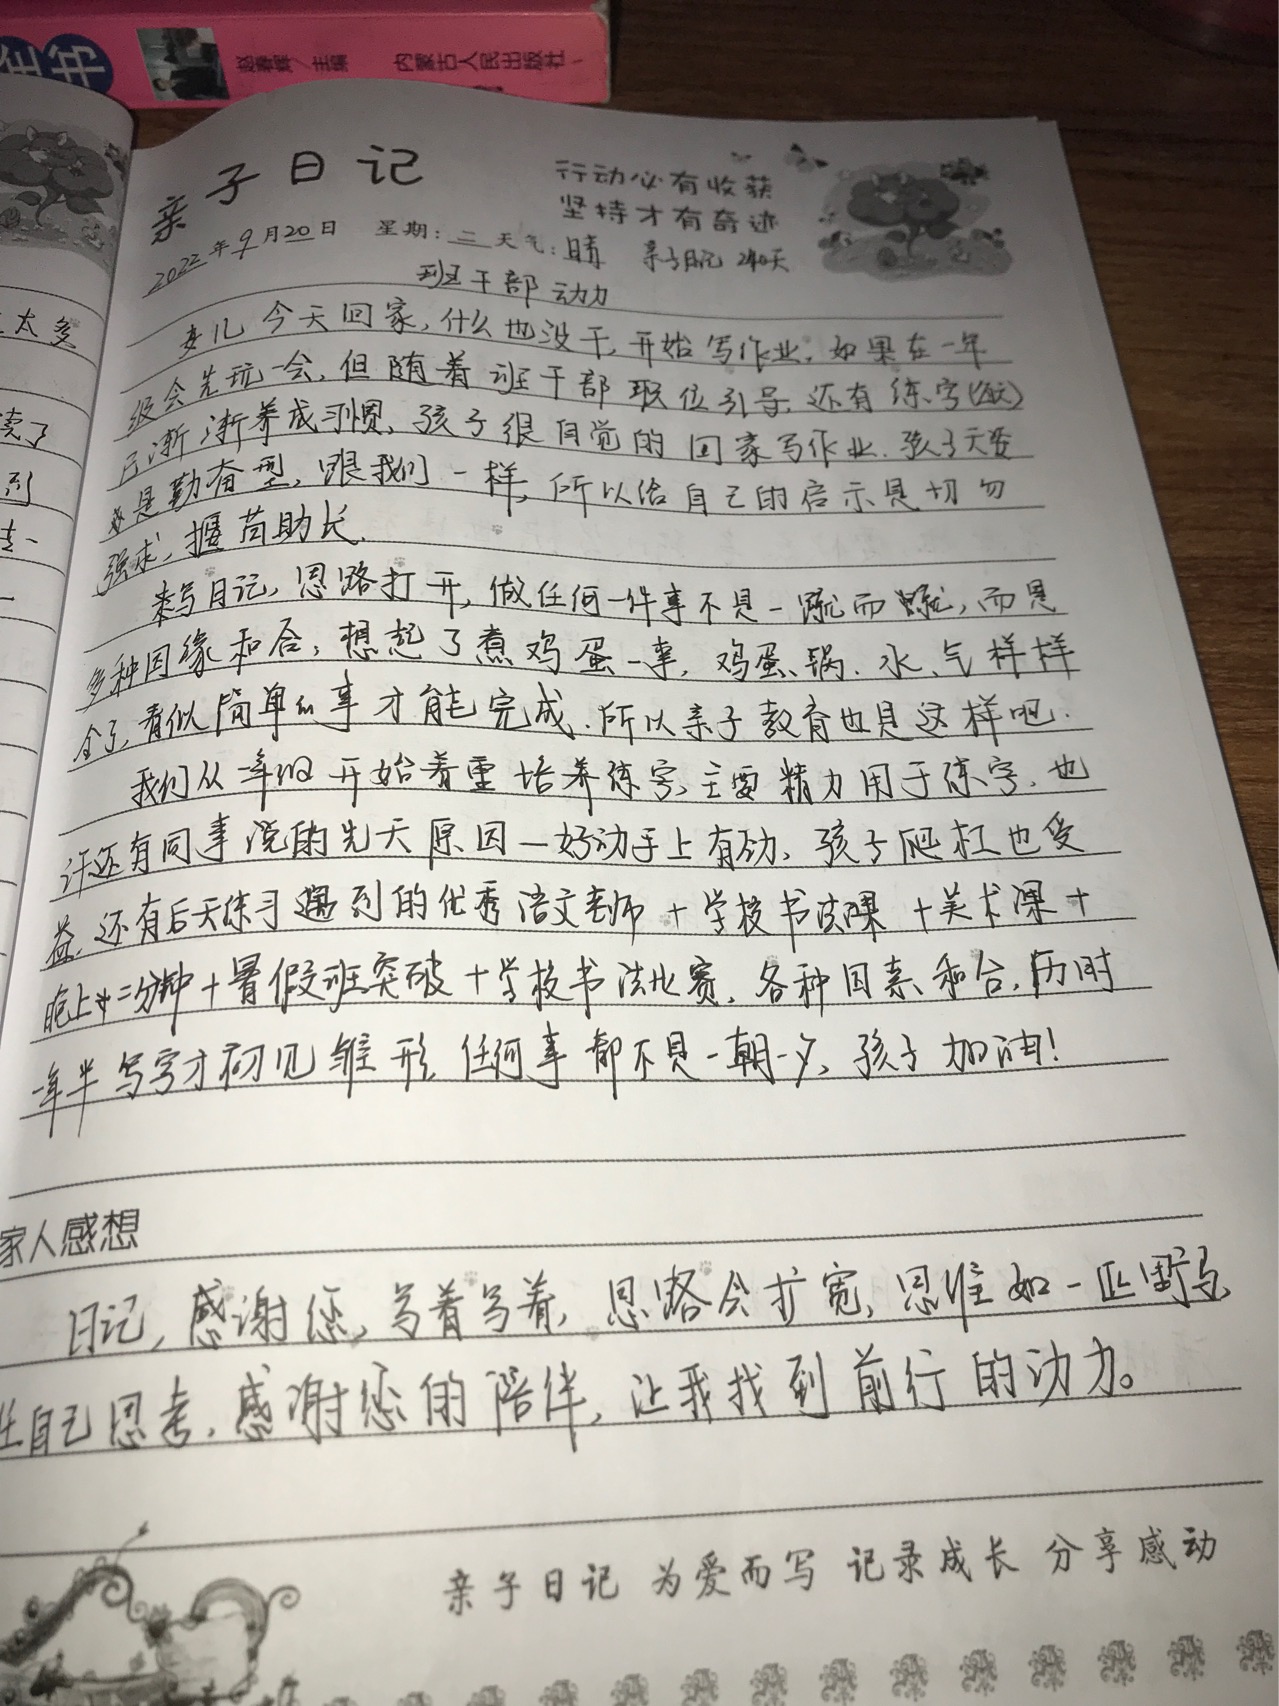 赵春辉/主编 内蒙古人民出版社
亲子日记
行动必有收获
坚持才有奇迹
2022年9月20日 星期:二 天气:晴 亲子日记240天
班干部动力
女儿今天回家,什么也没干,开始写作业,如果在一年
级会先玩一会,但随着班干部职位引导,还有练字
已渐渐养成习惯,孩子很自觉的回家写作业.孩子天资
是勤奋型,跟我们一样,所以给自己的启示是切勿
强求,揠苗助长.
来写日记,思路打开,做任何一件事不是一蹴而蹴,而是
多种因缘和合,想起了煮鸡蛋一事,鸡蛋、锅、水、气样样
全了,看似简单的事才能完成.所以亲子教育也是这样吧.
我们从一年级开始着重培养练字,主要精力用于练字,也
许还有同事说的先天原因一好动手上有劲,孩子爬杠也受
益,还有后天练习遇到的优秀语文老师+学校书法课+美术课+
晚上二分钟+暑假班突破+学校书法比赛,各种因素和合,历时
一年半写字才初见雏形,任何事都不是一朝一夕,孩子加油!
家人感想
日记,感谢您,写着写着,思路会扩宽,思维如一匹野马,
让自己思考,感谢您的陪伴,让我找到前行的动力。
亲子日记 为爱而写 记录成长 分享感动
太多
读了
到